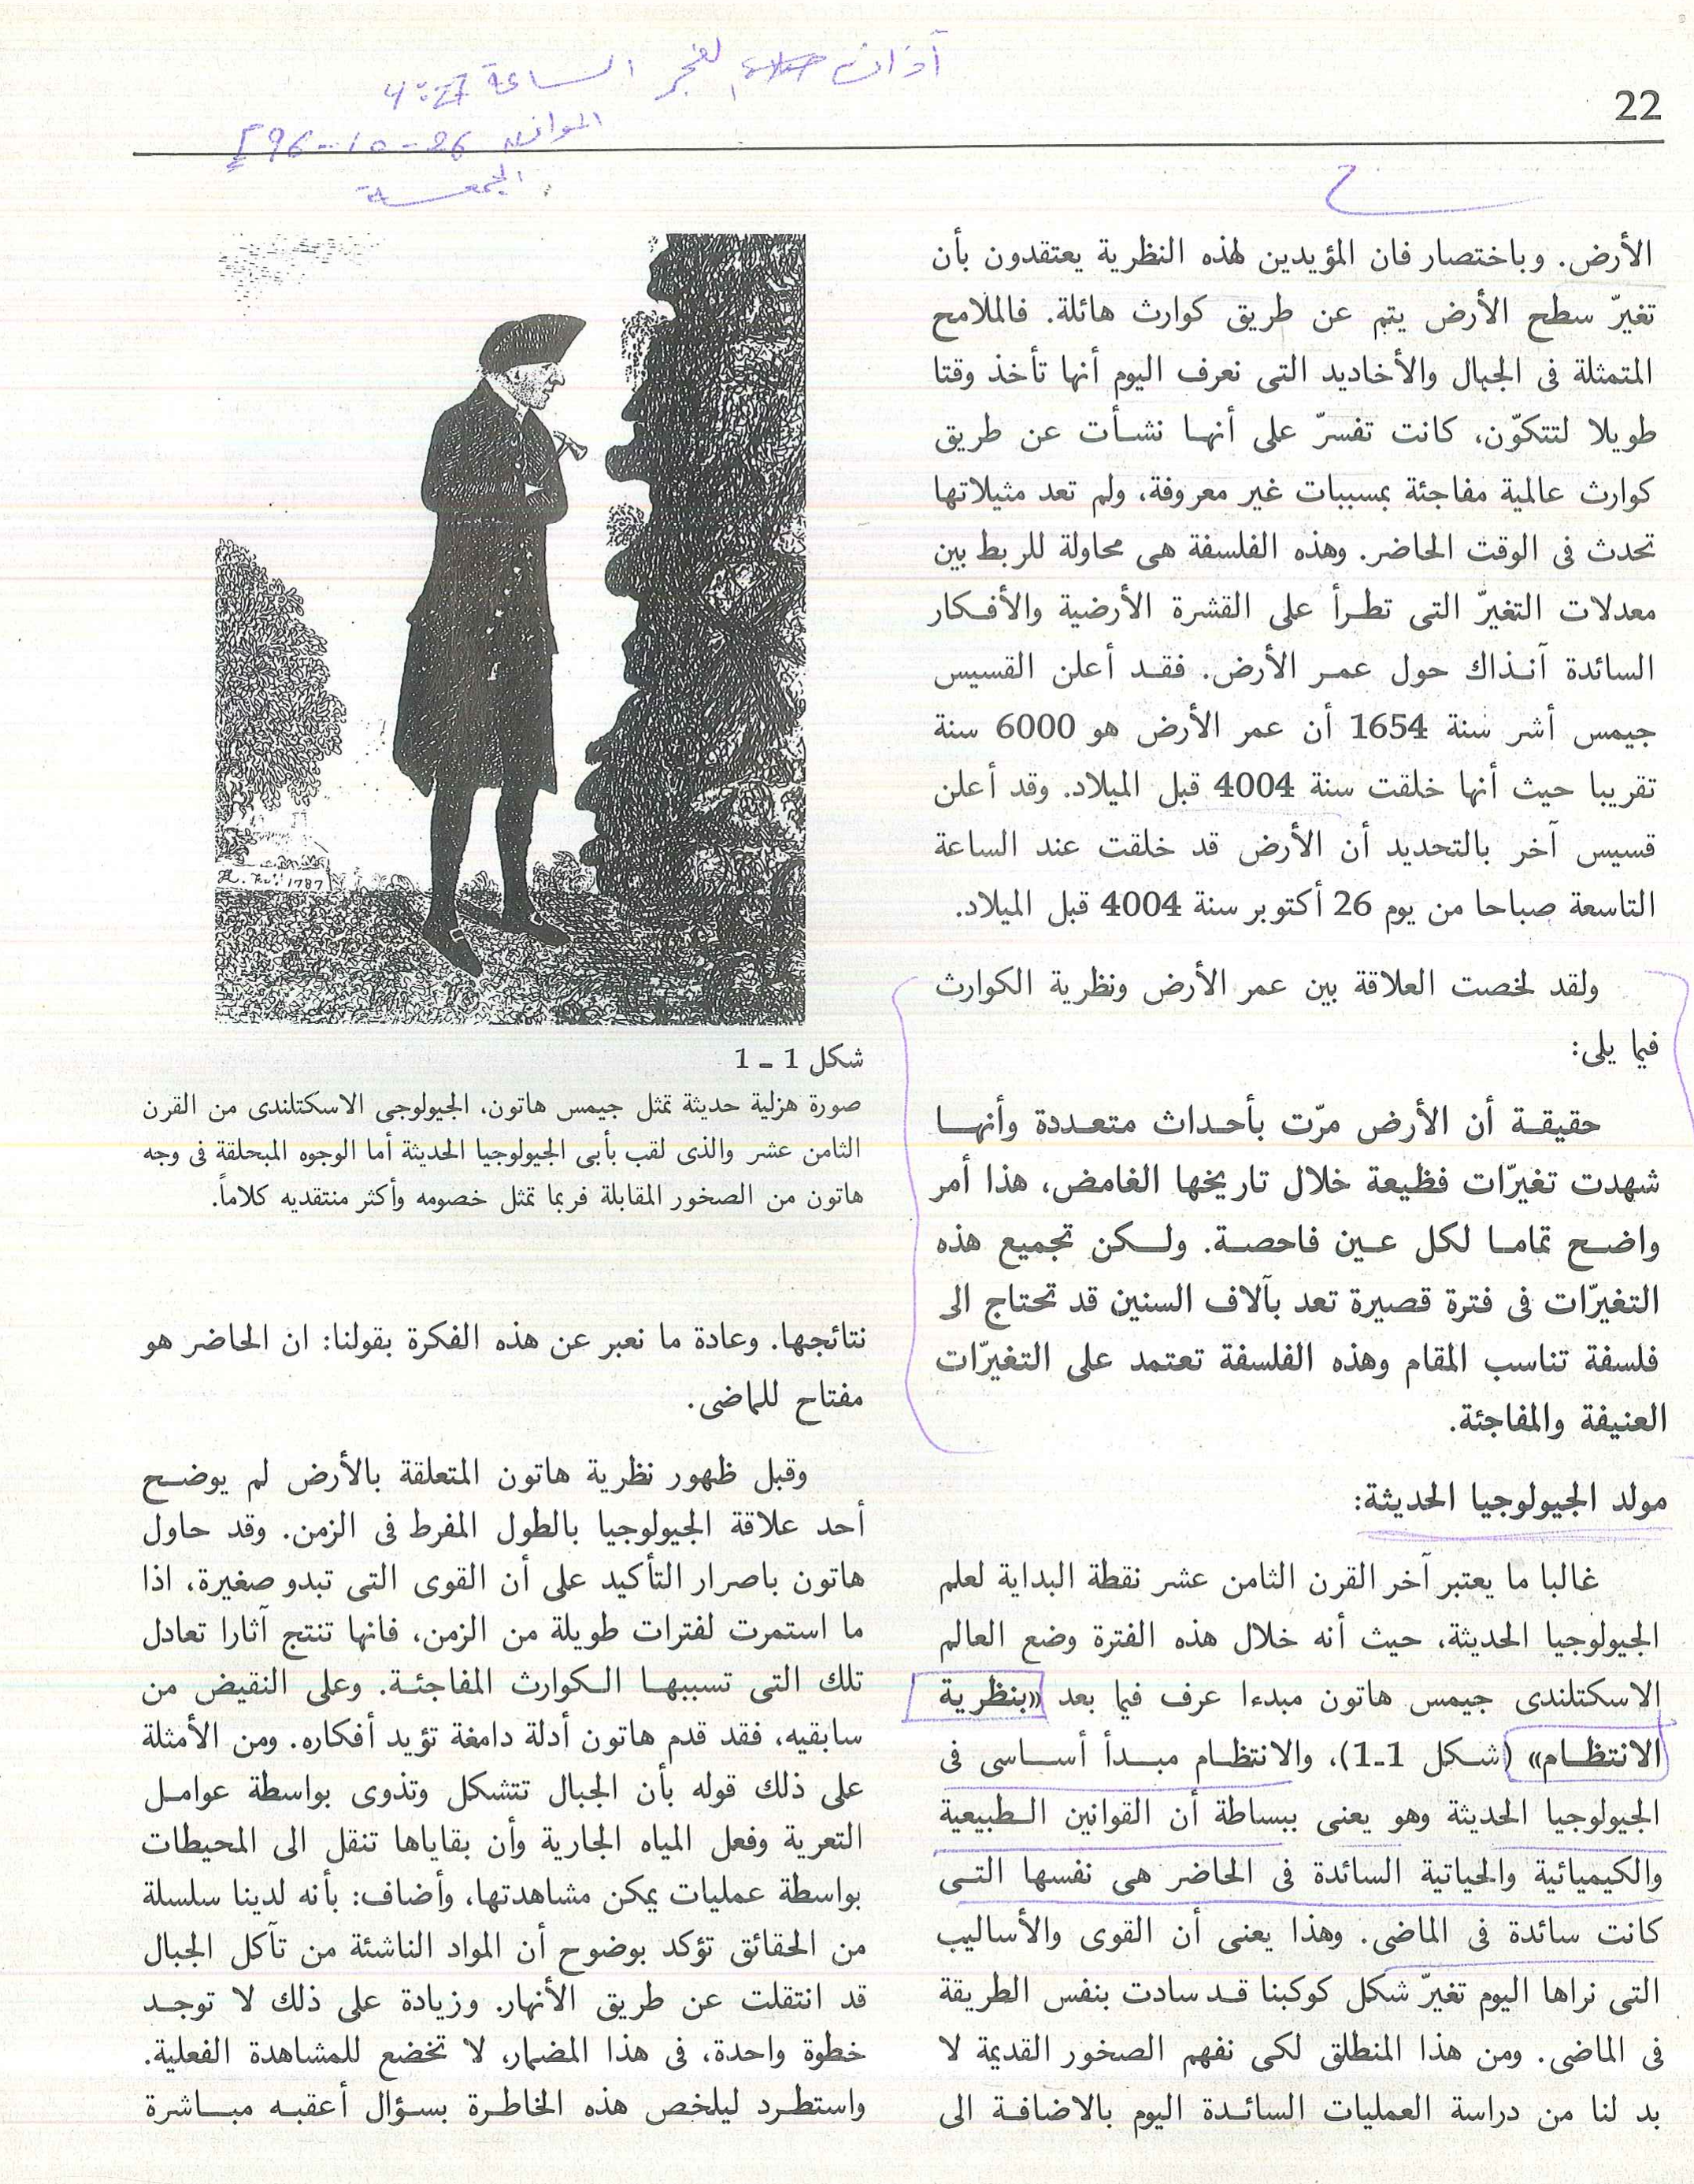 آذان الفجر الساعة
الموافق 26-10-96
الجمعة
22
الأرض. وباختصار فان المؤيدين لهذه النظرية يعتقدون بأن
تغيرّ سطح الأرض يتم عن طريق كوارث هائلة. فالملامح
المتمثلة فى الجبال والأخاديد التى نعرف اليوم أنها تأخذ وقتا
طويلا لتتكوّن، كانت تفسرّ على أنها نشأت عن طريق
كوارث عالمية مفاجئة بمسببات غير معروفة، ولم تعد مثيلاتها
تحدث فى الوقت الحاضر. وهذه الفلسفة هى محاولة للربط بين
معدلات التغيرّ التى تطرأ على القشرة الأرضية والأفكار
السائدة آنذاك حول عمر الأرض. فقد أعلن القسيس
جيمس أشر سنة 1654 أن عمر الأرض هو 6000 سنة
تقريبا حيث أنها خلقت سنة 4004 قبل الميلاد. وقد أعلن
قسيس آخر بالتحديد أن الأرض قد خلقت عند الساعة
التاسعة صباحا من يوم 26 أكتوبر سنة 4004 قبل الميلاد.
ولقد لخصت العلاقة بين عمر الأرض ونظرية الكوارث
فيما يلى:
حقيقة أن الأرض مرّت بأحداث متعددة وأنها
شهدت تغيرّات فظيعة خلال تاريخها الغامض، هذا أمر
واضح تماما لكل عين فاحصة. ولكن تجميع هذه
التغيرّات فى فترة قصيرة تعد بآلاف السنين قد تحتاج الى
فلسفة تناسب المقام وهذه الفلسفة تعتمد على التغيرّات
العنيفة والمفاجئة.
مولد الجيولوجيا الحديثة:
غالبا ما يعتبر آخر القرن الثامن عشر نقطة البداية لعلم
الجيولوجيا الحديثة، حيث أنه خلال هذه الفترة وضع العالم
الاسكتلندى جيمس هاتون مبدءا عرف فيما بعد «بنظرية
الانتظام» (شكل 1-1)، والانتظام مبدأ أساسى فى
الجيولوجيا الحديثة وهو يعنى ببساطة أن القوانين الطبيعية
والكيميائية والحياتية السائدة فى الحاضر هى نفسها التى
كانت سائدة فى الماضى. وهذا يعنى أن القوى والأساليب
التى نراها اليوم تغيرّ شكل كوكبنا قد سادت بنفس الطريقة
فى الماضى. ومن هذا المنطلق لكى نفهم الصخور القديمة لا
بد لنا من دراسة العمليات السائدة اليوم بالاضافة الى
1787
شكل 1 - 1
صورة هزلية حديثة تمثل جيمس هاتون، الجيولوجى الاسكتلندى من القرن
الثامن عشر والذى لقب بأبى الجيولوجيا الحديثة أما الوجوه المبحلقة فى وجه
هاتون من الصخور المقابلة فربما تمثل خصومه وأكثر منتقديه كلاماً.
نتائجها. وعادة ما نعبر عن هذه الفكرة بقولنا: ان الحاضر هو
مفتاح للماضى.
وقبل ظهور نظرية هاتون المتعلقة بالأرض لم يوضح
أحد علاقة الجيولوجيا بالطول المفرط فى الزمن. وقد حاول
هاتون باصرار التأكيد على أن القوى التى تبدو صغيرة، اذا
ما استمرت لفترات طويلة من الزمن، فانها تنتج آثارا تعادل
تلك التى تسببها الكوارث المفاجئة. وعلى النقيض من
سابقيه، فقد قدم هاتون أدلة دامغة تؤيد أفكاره. ومن الأمثلة
على ذلك قوله بأن الجبال تتشكل وتذوى بواسطة عوامل
التعرية وفعل المياه الجارية وأن بقاياها تنقل الى المحيطات
بواسطة عمليات يمكن مشاهدتها، وأضاف: بأنه لدينا سلسلة
من الحقائق تؤكد بوضوح أن المواد الناشئة من تآكل الجبال
قد انتقلت عن طريق الأنهار. وزيادة على ذلك لا توجد
خطوة واحدة، فى هذا المضمار، لا تخضع للمشاهدة الفعلية.
واستطرد ليلخص هذه الخاطرة بسؤال أعقبه مباشرة